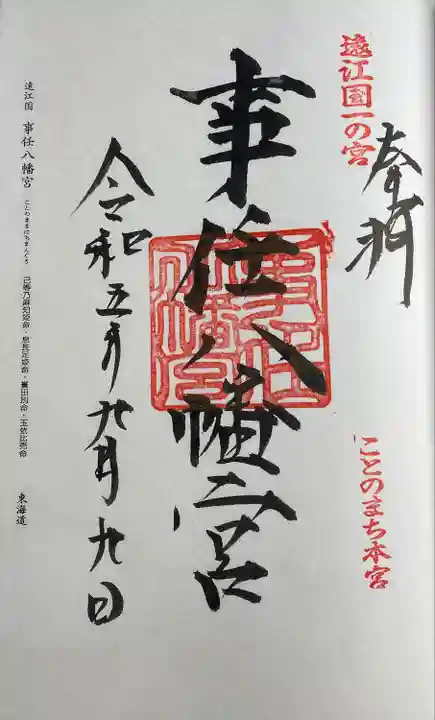 奉拝
遠江国一の宮
ことのまち本宮
事任八幡宮
令和五年九月九日
遠江国 事任八幡宮 ことのままはちまんぐう 己等乃麻知姫命・息長足姫命・誉田別命・玉依比売命 東海道